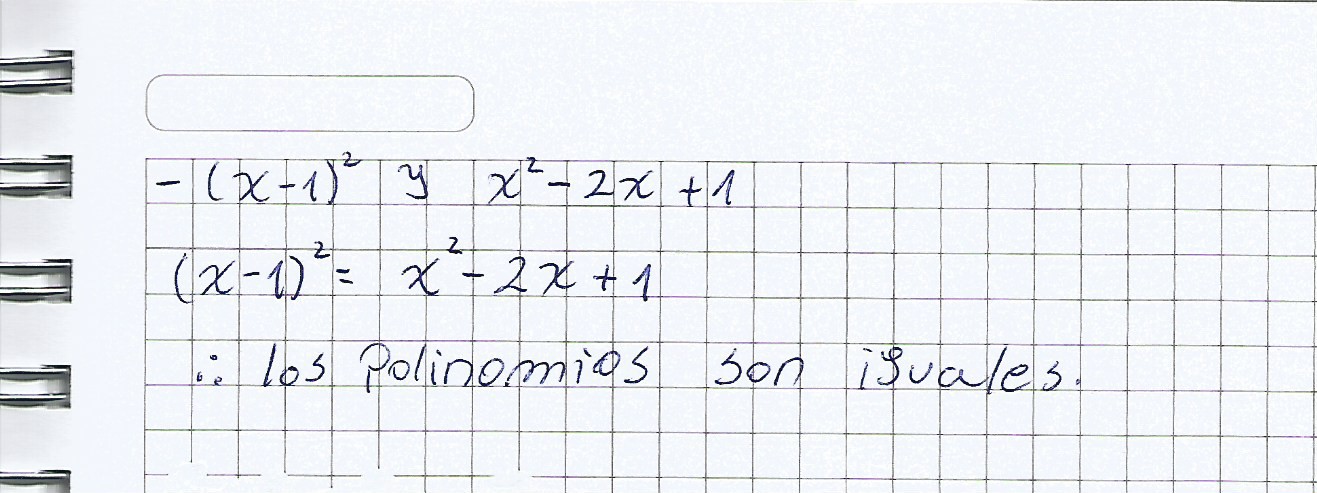 - (x-1)² y x² - 2x + 1
(x-1)² = x² - 2x + 1
∴ los polinomios son iguales.